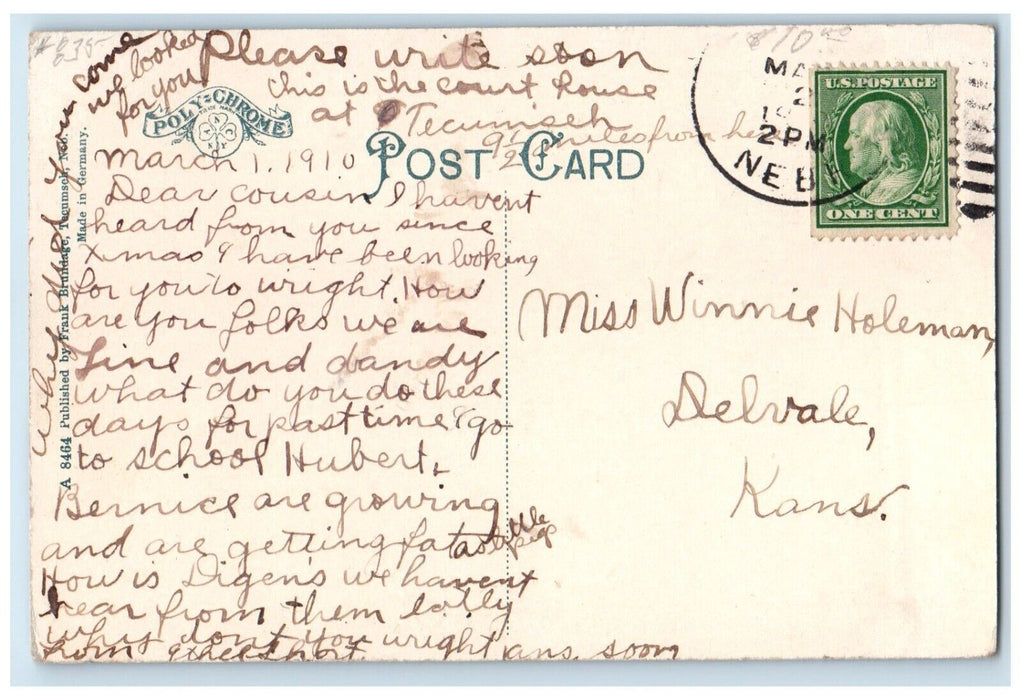 Please write soon
this is the court house
at Tecumseh
9 1/2 miles from here
why dont you come
we looked
for you
POLY-CHROME
TRADE MARK
POST CARD
March 1, 1910
Dear cousin I havent
heard from you since
Xmas I have been looking
for you to wright. How
are you folks we are
fine and dandy
what do you do these
days for pastime I go
to school Hubert +
Bernice are growing
and are getting fat as little pigs
How is Digens we havent
hear from them latly
why dont you wright ans. soon
from
A 8464 Published by Frank Brundage, Tecumseh, Nebr.
Made in Germany.
MA
2
19
2 PM
NEBR
U.S. POSTAGE
ONE CENT
Miss Winnie Holeman,
Delvale,
Kans.